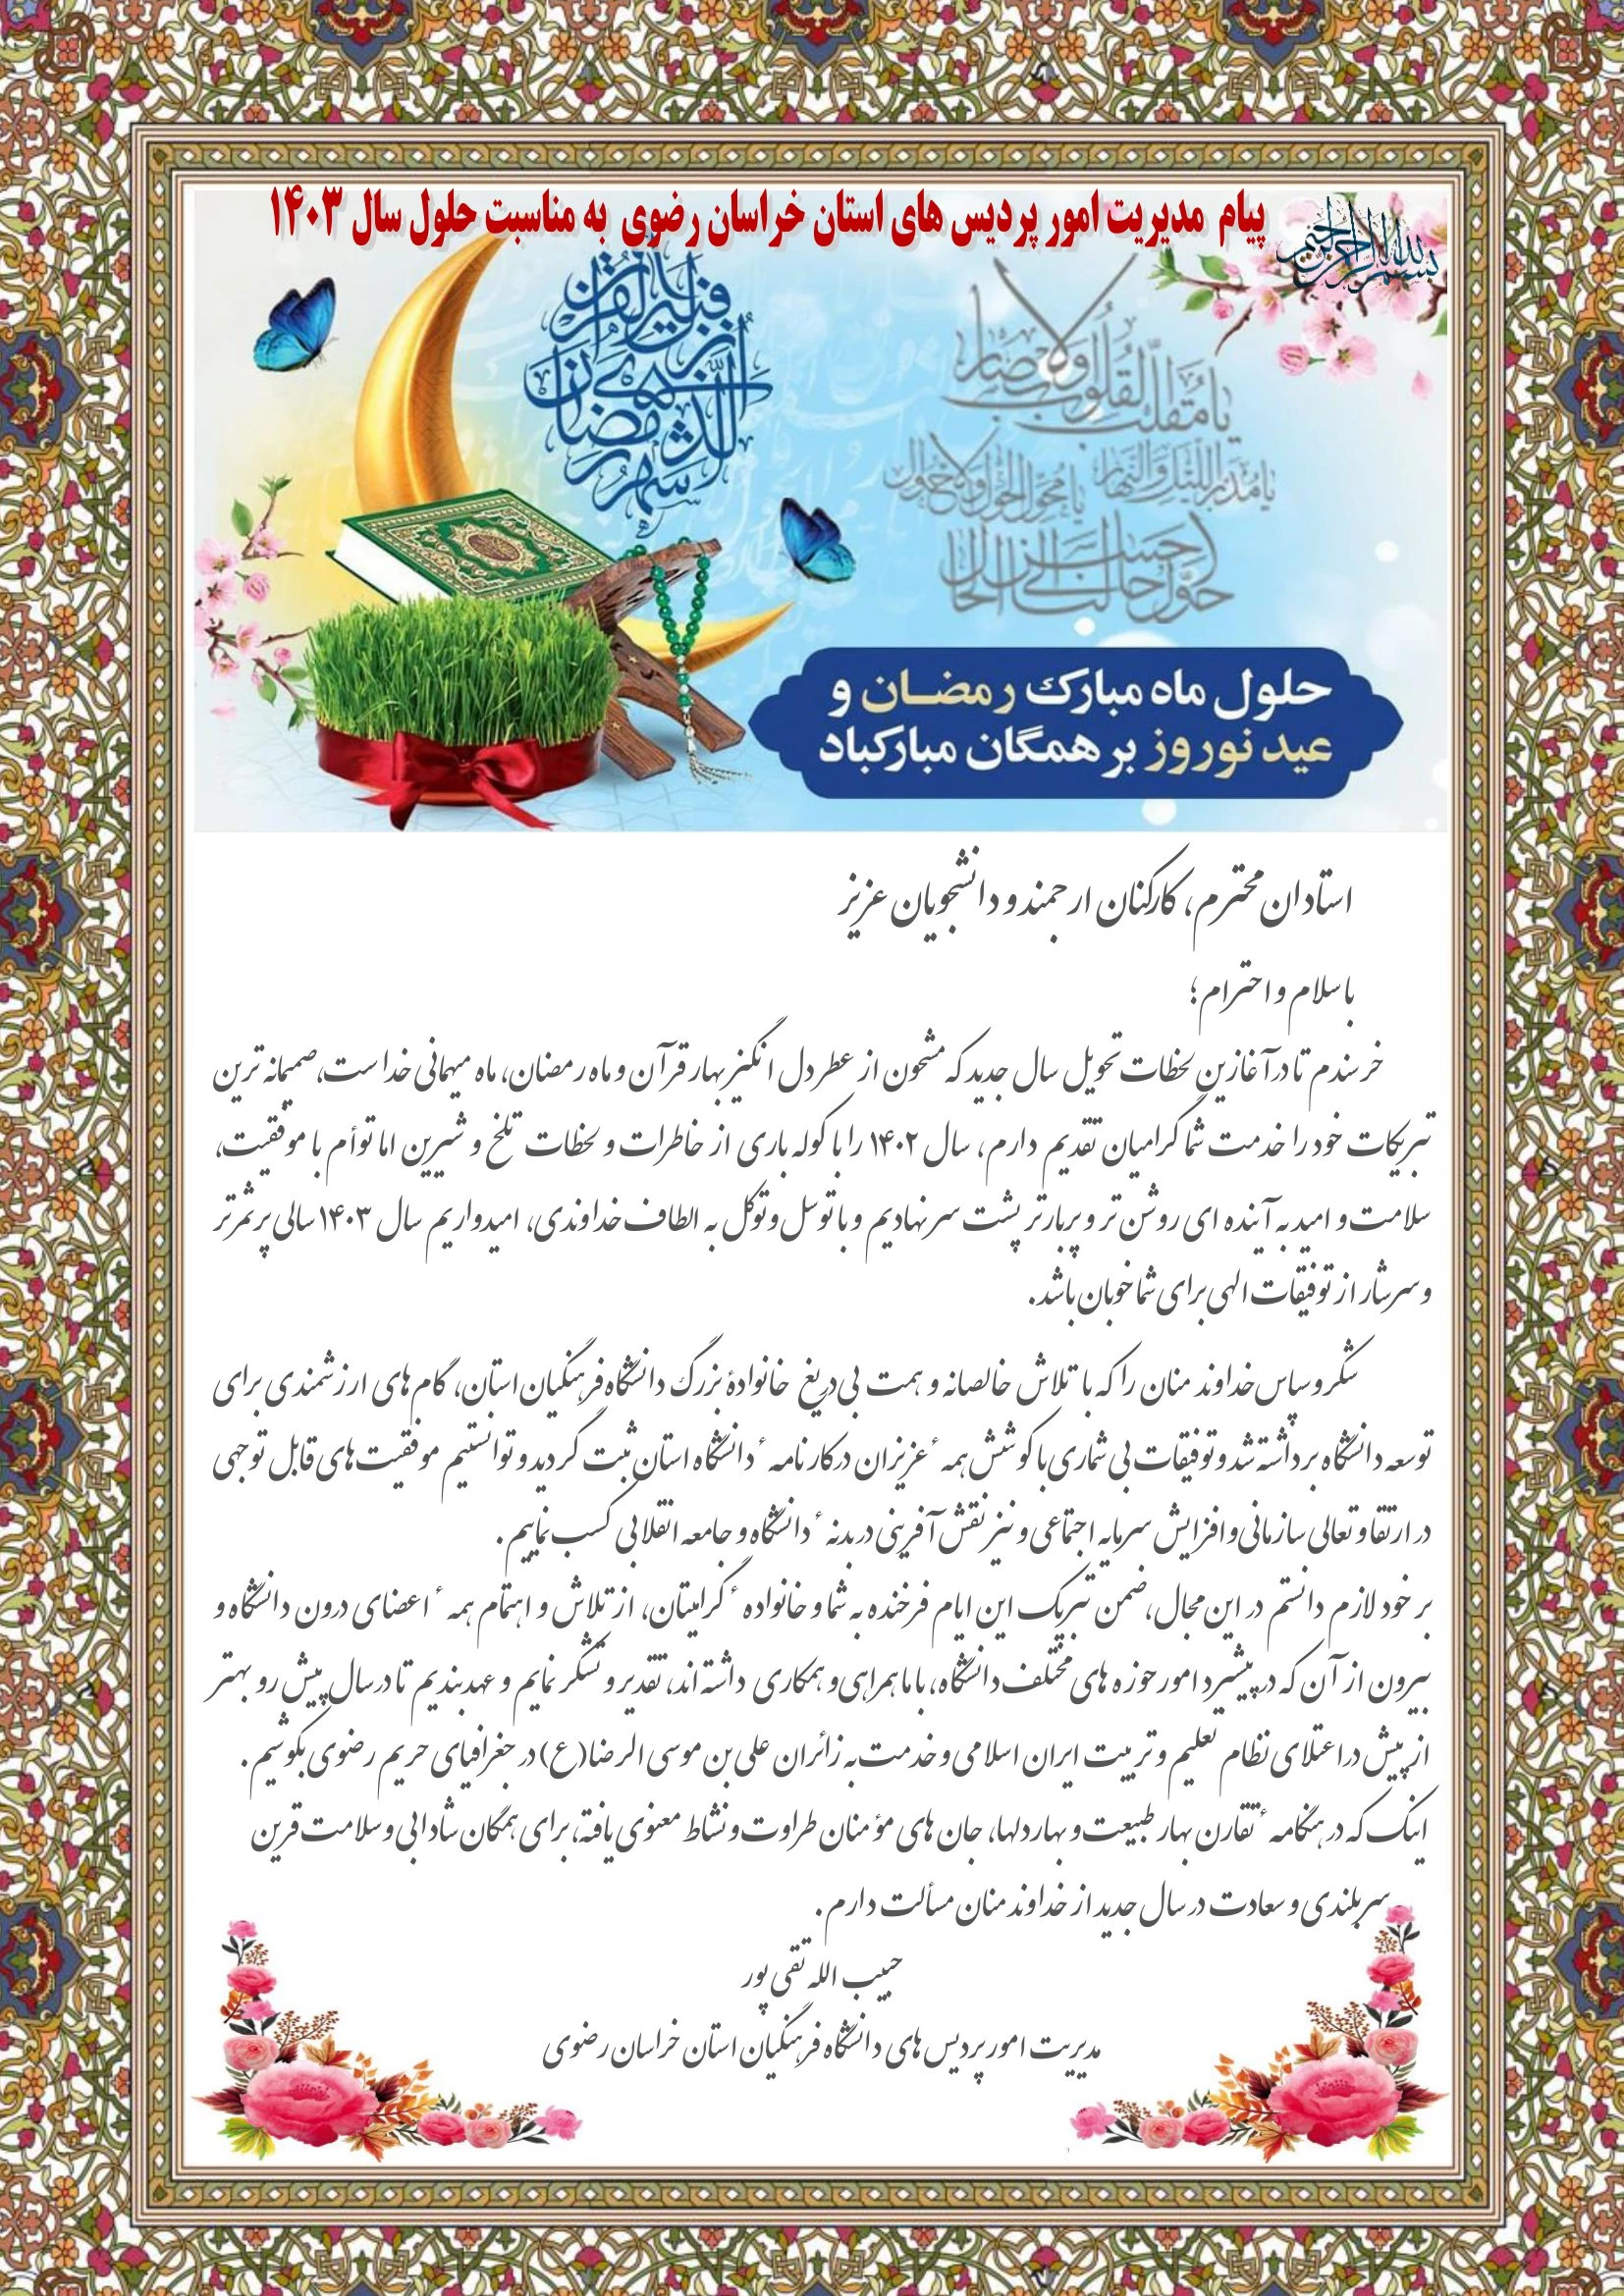 پیام مدیریت امور پردیس های استان خراسان رضوی به مناسبت حلول سال ۱۴۰۳
بسم الله الرحمن الرحیم
شهر رمضان الذی انزل فیه القرآن
یا مقلب القلوب والابصار
یا مدبر اللیل والنهار یا محول الحول والاحوال
حول حالنا الی احسن الحال
حلول ماه مبارک رمضان و
عید نوروز بر همگان مبارکباد
استادان محترم، کارکنان ارجمند و دانشجویان عزیز
با سلام و احترام؛
خرسندم تا در آغازین لحظات تحویل سال جدید که مشحون از عطر دل انگیز بهار قرآن و ماه رمضان، ماه میهمانی خداست، صمیمانه ترین
تبریکات خود را خدمت شما گرامیان تقدیم دارم، سال ۱۴۰۲ را با کوله باری از خاطرات و لحظات تلخ و شیرین اما توأم با موفقیت،
سلامت و امید به آینده ای روشن تر و پربارتر پشت سر نهادیم و با توسل و توکل به الطاف خداوندی، امیدواریم سال ۱۴۰۳ سالی پرثمرتر
و سرشار از توفیقات الهی برای شما خوبان باشد.
شکر و سپاس خداوند منان را که با تلاش خالصانه و همت بی دریغ خانوادهٔ بزرگ دانشگاه فرهنگیان استان، گام های ارزشمندی برای
توسعه دانشگاه برداشته شد و توفیقات بی شماری با کوشش همه ٔ عزیزان در کارنامه ٔ دانشگاه استان ثبت گردید و توانستیم موفقیت های قابل توجهی
در ارتقا و تعالی سازمانی و افزایش سرمایه اجتماعی و نیز نقش آفرینی در بدنه ٔ دانشگاه و جامعه انقلابی کسب نماییم.
بر خود لازم دانستم در این مجال، ضمن تبریک این ایام فرخنده به شما و خانواده ٔ گرامیتان، از تلاش و اهتمام همه ٔ اعضای درون دانشگاه و
بیرون از آن که در پیشبرد امور حوزه های مختلف دانشگاه، با ما همراهی و همکاری داشته اند، تقدیر و تشکر نمایم و عهد بندیم تا در سال پیش رو بهتر
از پیش در اعتلای نظام تعلیم و تربیت ایران اسلامی و خدمت به زائران علی بن موسی الرضا(ع) در جغرافیای حریم رضوی بکوشیم.
اینک که در هنگامه ٔ تقارن بهار طبیعت و بهار دلها، جان های مؤمنان طراوت و نشاط معنوی یافته، برای همگان شادابی و سلامت قرین
سربلندی و سعادت در سال جدید از خداوند منان مسألت دارم.
حبیب الله تقی پور
مدیریت امور پردیس های دانشگاه فرهنگیان استان خراسان رضوی